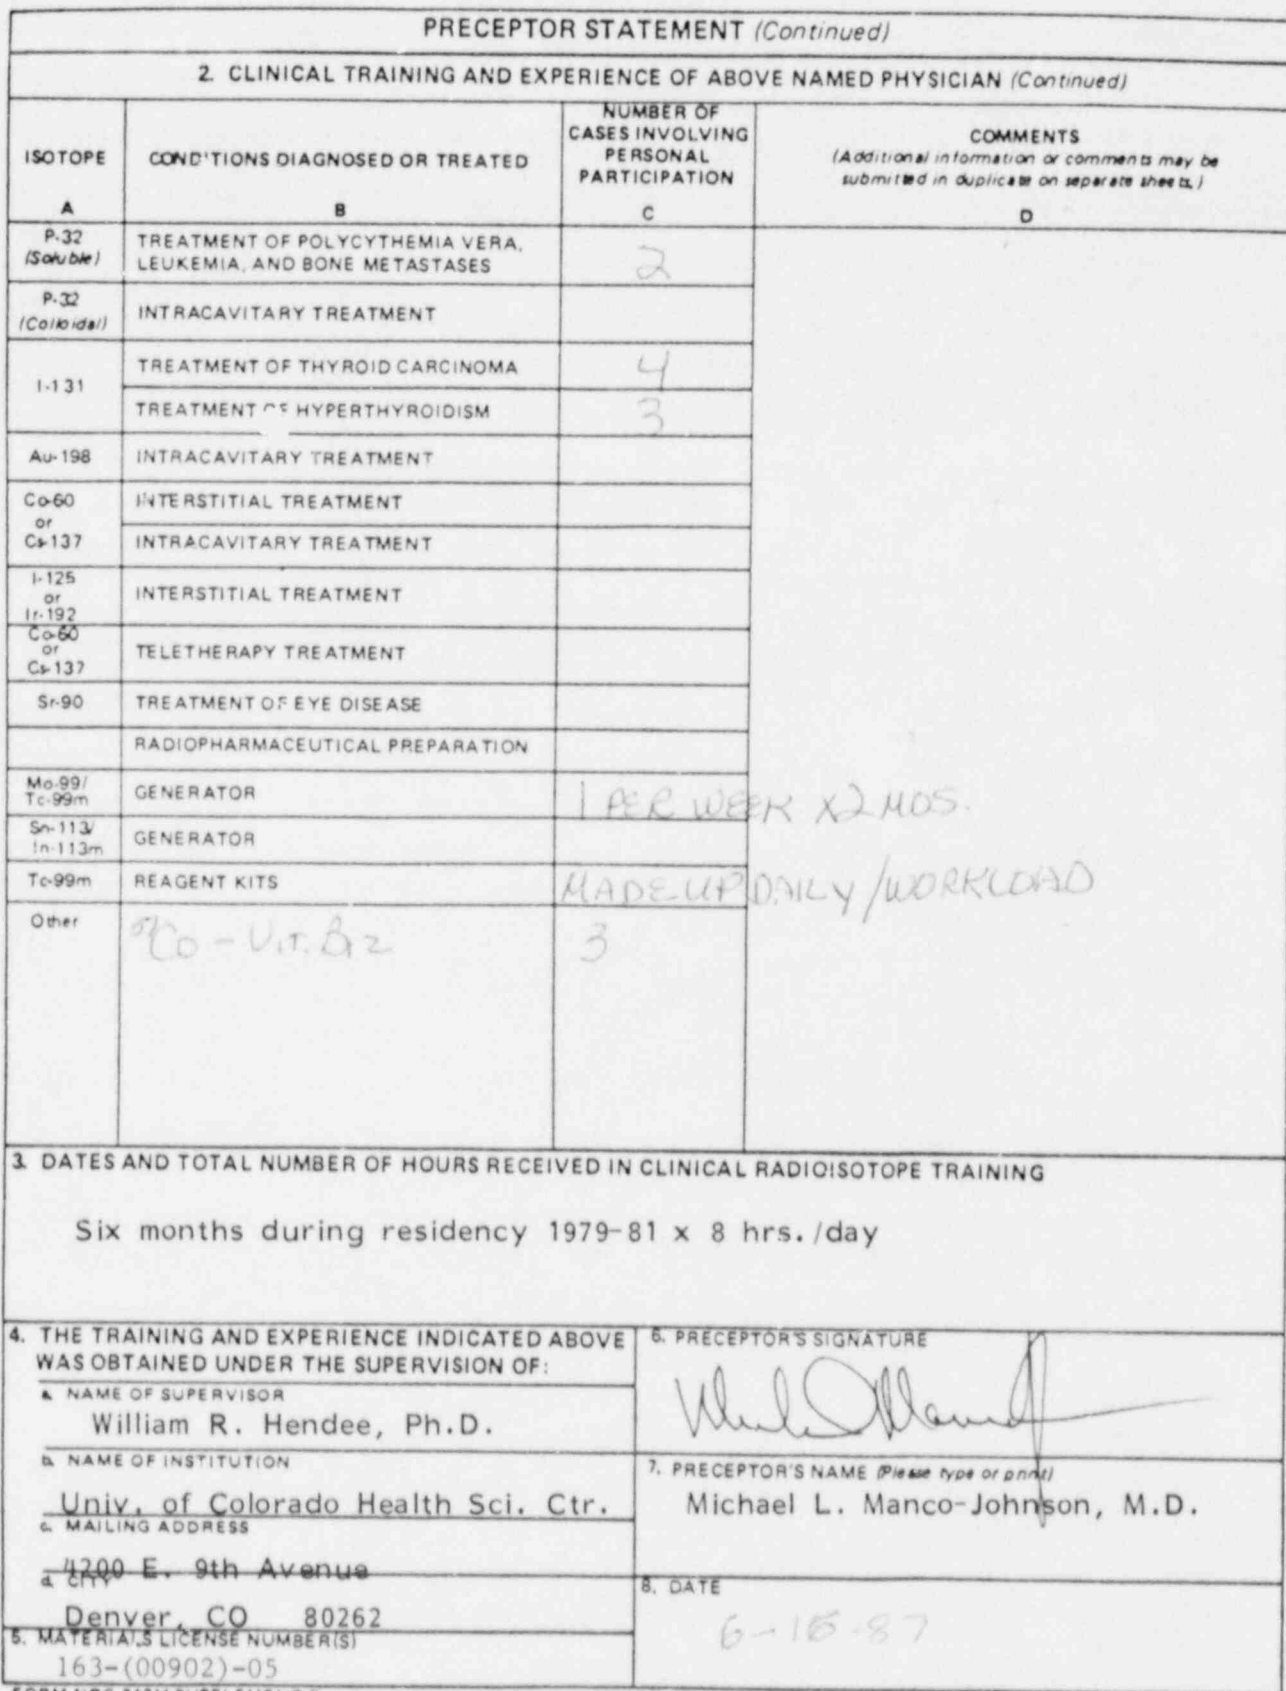 PRECEPTOR STATEMENT (Continued)
2. CLINICAL TRAINING AND EXPERIENCE OF ABOVE NAMED PHYSICIAN (Continued)
ISOTOPE
A
CONDITIONS DIAGNOSED OR TREATED
B
NUMBER OF
CASES INVOLVING
PERSONAL
PARTICIPATION
C
COMMENTS
(Additional information or comments may be
submitted in duplicate on separate sheets.)
D
P-32
(Soluble)
TREATMENT OF POLYCYTHEMIA VERA,
LEUKEMIA, AND BONE METASTASES
2
P-32
(Colloidal)
INTRACAVITARY TREATMENT
I-131
TREATMENT OF THYROID CARCINOMA
4
TREATMENT OF HYPERTHYROIDISM
3
Au-198
INTRACAVITARY TREATMENT
Co-60
or
Cs-137
INTERSTITIAL TREATMENT
INTRACAVITARY TREATMENT
I-125
or
Ir-192
INTERSTITIAL TREATMENT
Co-60
or
Cs-137
TELETHERAPY TREATMENT
Sr-90
TREATMENT OF EYE DISEASE
RADIOPHARMACEUTICAL PREPARATION
Mo-99/
Tc-99m
GENERATOR
1 PER WEEK X2 MOS.
Sn-113/
In-113m
GENERATOR
Tc-99m
REAGENT KITS
MADE UP DAILY/WORKLOAD
Other
Co - VIT. B12
3
3. DATES AND TOTAL NUMBER OF HOURS RECEIVED IN CLINICAL RADIOISOTOPE TRAINING
Six months during residency 1979-81 x 8 hrs./day
4. THE TRAINING AND EXPERIENCE INDICATED ABOVE
WAS OBTAINED UNDER THE SUPERVISION OF:
a. NAME OF SUPERVISOR
William R. Hendee, Ph.D.
b. NAME OF INSTITUTION
Univ. of Colorado Health Sci. Ctr.
c. MAILING ADDRESS
4200 E. 9th Avenue
d. CITY
Denver, CO 80262
5. MATERIALS LICENSE NUMBER(S)
163-(00902)-05
6. PRECEPTOR'S SIGNATURE
7. PRECEPTOR'S NAME (Please type or print)
Michael L. Manco-Johnson, M.D.
8. DATE